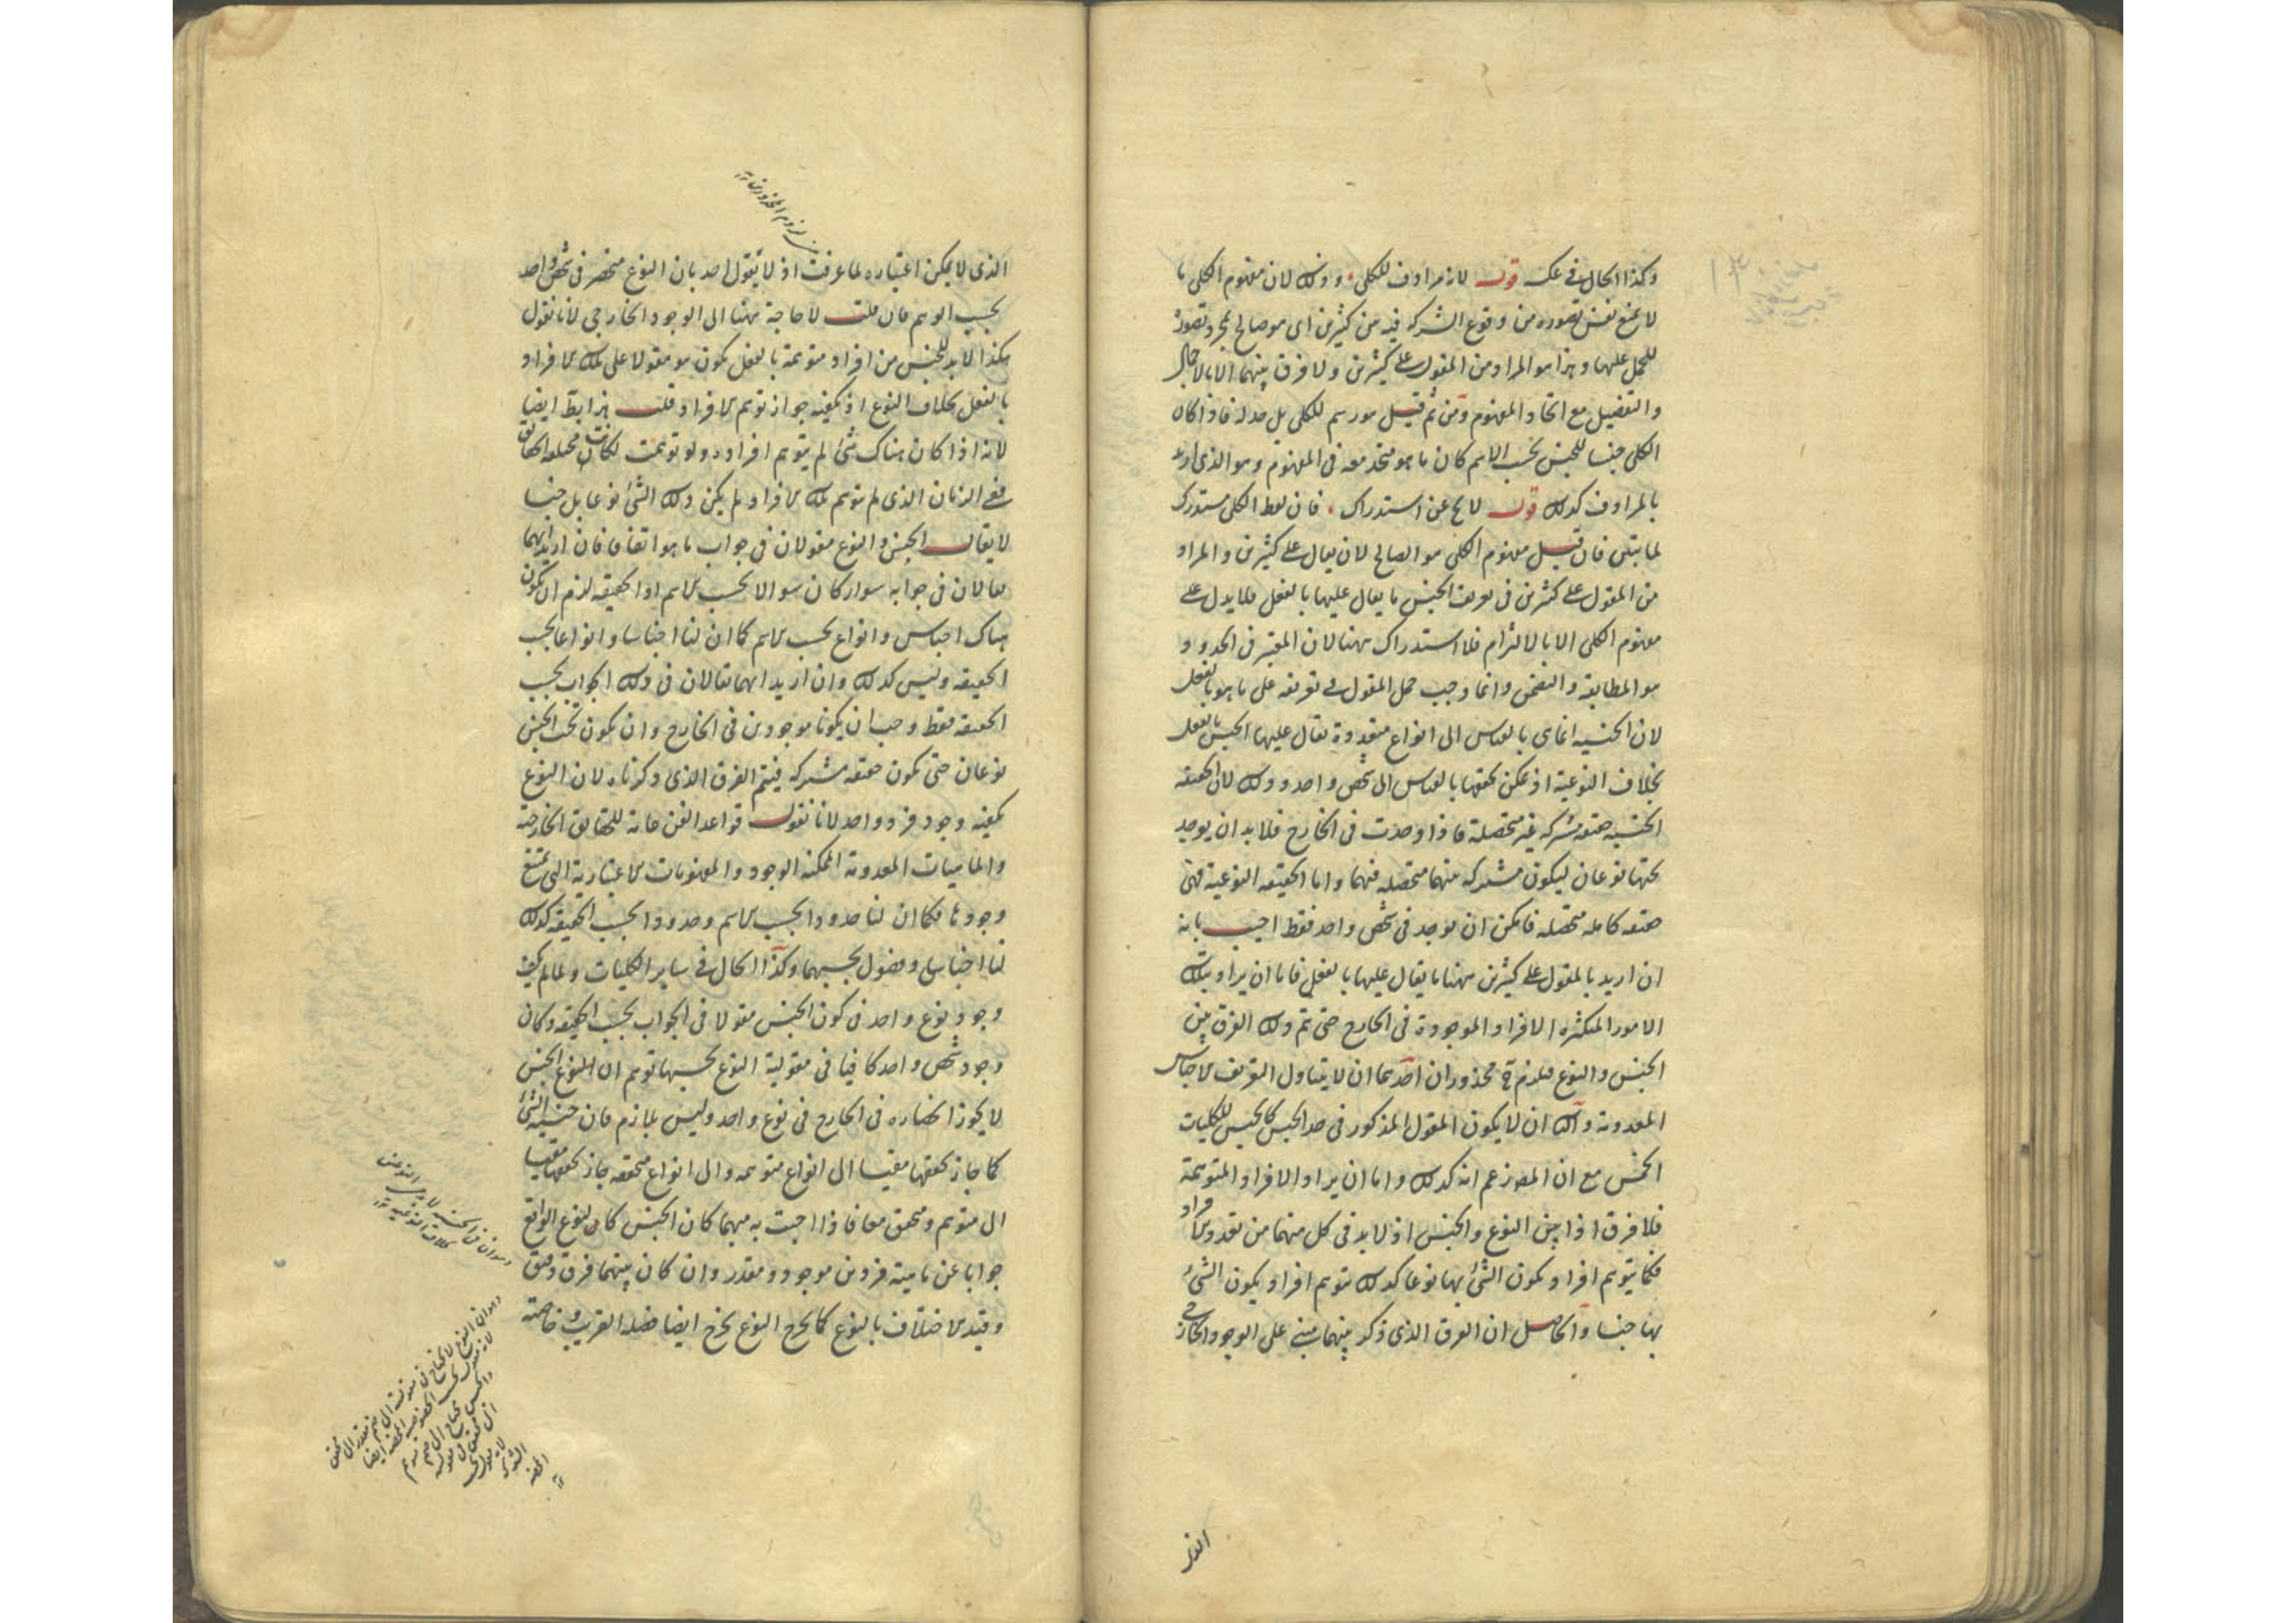 وكذا الحال في عكسه قوله لانه مرادف للكلي وذلك لان مفهوم الكلي ما
لا يمنع نفس تصوره من وقوع الشركة فيه من كثيرين اى هو صالح بمجرد تصوره
للحمل عليها وهذا هو المراد من المقول على كثيرين ولا فرق بينهما الا بالاجمال
والتفصيل مع اتحاد المفهوم ومن ثم قيل هو رسم للكلي بل حد له فاذا كان
الكلي جنسا للجنس بحسب الاسم كان ما هو متحد معه في المفهوم وهو الذي اريد
بالمرادف كذلك قوله لا يخ عن استدراك فان لفظ الكلي مستدرك
لما بقي فان قيل مفهوم الكلي هو الصالح لان يقال على كثيرين والمراد
من المقول على كثيرين في تعريف الجنس ما يقال عليها بالفعل فلا يدل على
مفهوم الكلي الا بالالتزام فلا استدراك ههنا لان المعتبر في الحدود
هو المطابقة والتضمن وانما وجب حمل المقول في تعريفه على ما هو بالفعل
لان الجنسية انما هى بالقياس الى انواع متعددة يقال عليها الجنس بالفعل
بخلاف النوعية اذ يمكن تحققها بالقياس الى شخص واحد وذلك لان الحقيقة
الجنسية حقيقة مشتركة غير متحصلة فاذا وجدت في الخارج فلا بد ان يوجد
تحتها نوعان ليكون مشتركة بينهما متحصلة فيهما واما الحقيقة النوعية فهى
حقيقة كاملة متحصلة فامكن ان توجد في شخص واحد فقط اجيب بانه
ان اريد بالمقول على كثيرين ههنا ما يقال عليها بالفعل فاما ان يراد بتلك
الامور المتكثرة الافراد الموجودة في الخارج حتى يتم ذلك الفرق بين
الجنس والنوع فيلزم ح محذوران احدهما ان لا يتناول التعريف الاجناس
المعدومة والثاني ان لا يكون المقول المذكور في حد الجنس كالجنس للكليات
الخمس مع ان المص زعم انه كذلك واما ان يراد الافراد المتوهمة
فلا فرق اذا بين النوع والجنس اذ لا بد في كل منهما من تعدد الافراد
فكما يتوهم افراد يكون الشئ بها نوعا كذلك يتوهم افراد يكون الشئ
بها جنسا والحاصل ان الفرق الذي ذكر بينهما مبني على الوجود الخارجي
الذي
الذي لا يمكن اعتباره لما عرفت اذ لا يقول احد بان النوع منحصر في شخص واحد
بحسب الوهم فان قلت لا حاجة ههنا الى الوجود الخارجي لانا نقول
هكذا لا بد للجنس من افراد متوهمة بالفعل يكون هو مقولا على تلك الافراد
بالفعل بخلاف النوع اذ يكفيه جواز توهم الافراد قلت هذا بط ايضا
لانه اذا كان هناك شئ لم يتوهم افراده ولو توهمت لكانت مختلفة الحقائق
ففي الزمان الذي لم يتوهم تلك الافراد لم يكن ذلك الشئ نوعا بل جنسا
لا يقال الجنس والنوع مقولان في جواب ما هو اتفاقا فان اريد انهما
يقالان في جوابه سواء كان سوالا بحسب الاسم او الحقيقة لزم ان يكون
هناك اجناس وانواع بحسب الاسم كما ان لنا اجناسا وانواعا بحسب
الحقيقة وليس كذلك وان اريد انهما يقالان في ذلك الجواب بحسب
الحقيقة فقط وجب ان يكونا موجودين في الخارج وان يكون تحت الجنس
نوعان حتى يكون حقيقة مشتركة فيتم الفرق الذي ذكرناه لان النوع
يكفيه وجود فرد واحد لانا نقول قواعد الفن عامة للحقايق الخارجية
والماهيات المعدومة الممكنة الوجود والمفهومات الاعتبارية التي يمتنع
وجودها فكما ان لنا حدودا بحسب الاسم وحدودا بحسب الحقيقة كذلك
لنا اجناس وفصول بحسبهما وكذا الحال في ساير الكليات ولما لم يكف
وجود نوع واحد في كون الجنس مقولا في الجواب بحسب الحقيقة وكان
وجود شخص واحد كافيا في مقولية النوع بحسبها توهم ان الجنس
لا يجوز انحصاره في الخارج في نوع واحد وليس بلازم فان جنسية الشئ
كما جاز تحققها مقيسا الى انواع متوهمة والى انواع متحققة جاز تحققها مقيسا
الى متوهم ومتحقق معا فاذا اجبت به عنهما كان الجنس كان للنوع الواقع
جوابا عن ماهية فردين موجود ومقدر وان كان بينهما فرق دقيق
وقيد الاختلاف بالنوع كما يخرج النوع يخرج ايضا فصله القريب وخاصته